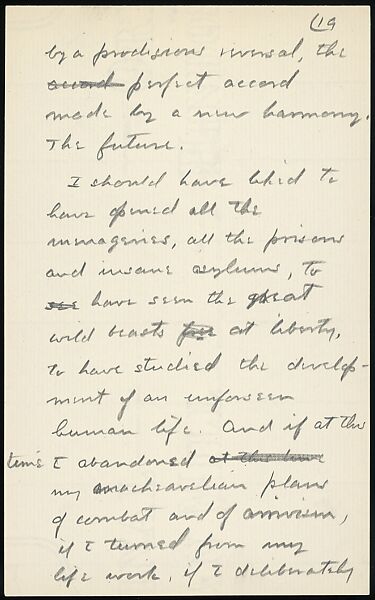 19
by a prodigious reversal, the
accord perfect accord
made by a new harmony.
The future.
I should have liked to
have opened all the
menageries, all the prisons
and insane asylums, to
see have seen the great
wild beasts free at liberty,
to have studied the develop-
ment of an unforseen
human life. And if at this
time I abandoned at this time
my machiavelian plans
of combat and of arrivism,
if I turned from my
life work, if I deliberately